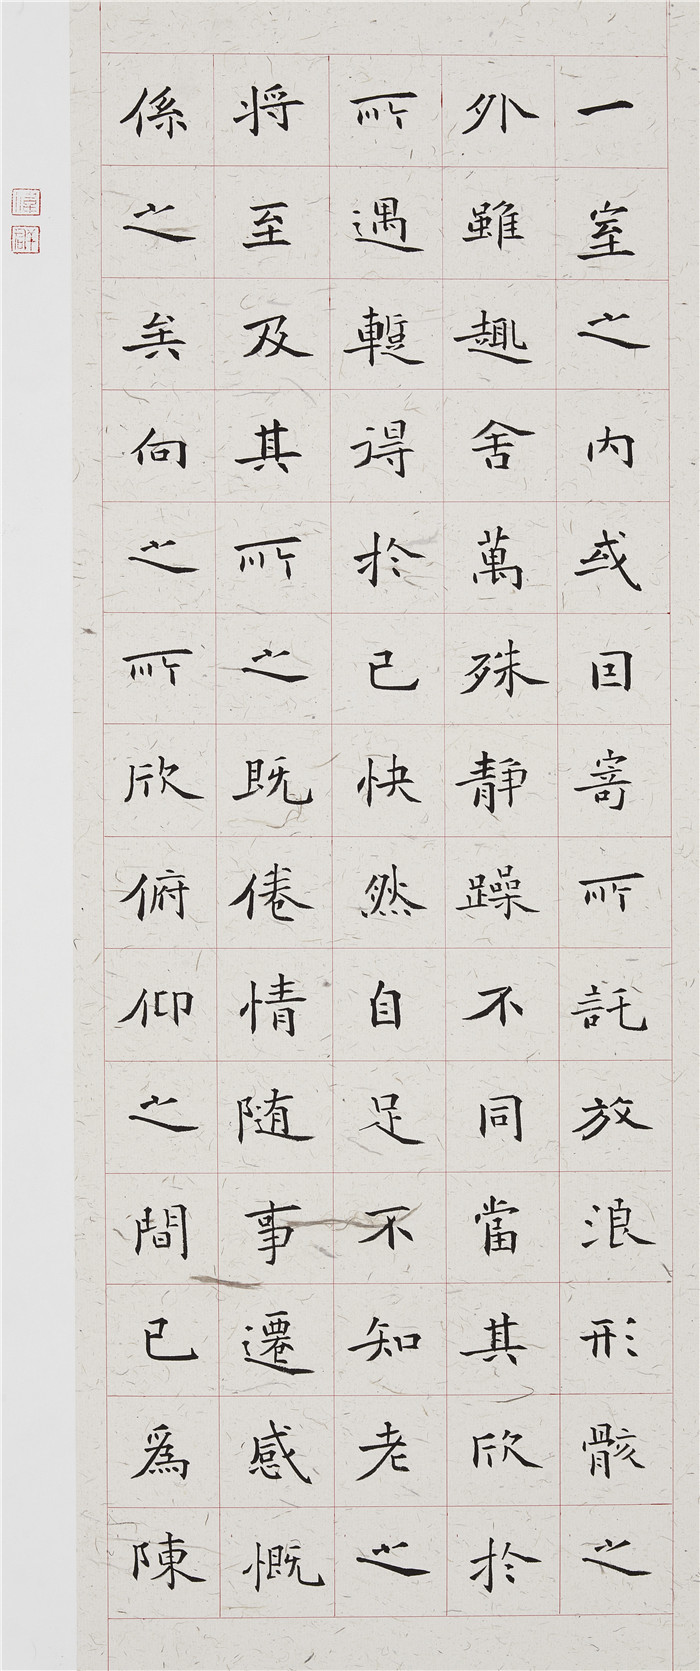 一室之内或因寄所託放浪形骸之
外雖趣舍萬殊靜躁不同當其欣於
所遇蹔得於己快然自足不知老之
将至及其所之既倦情随事遷感慨
係之矣向之所欣俯仰之間已爲陳